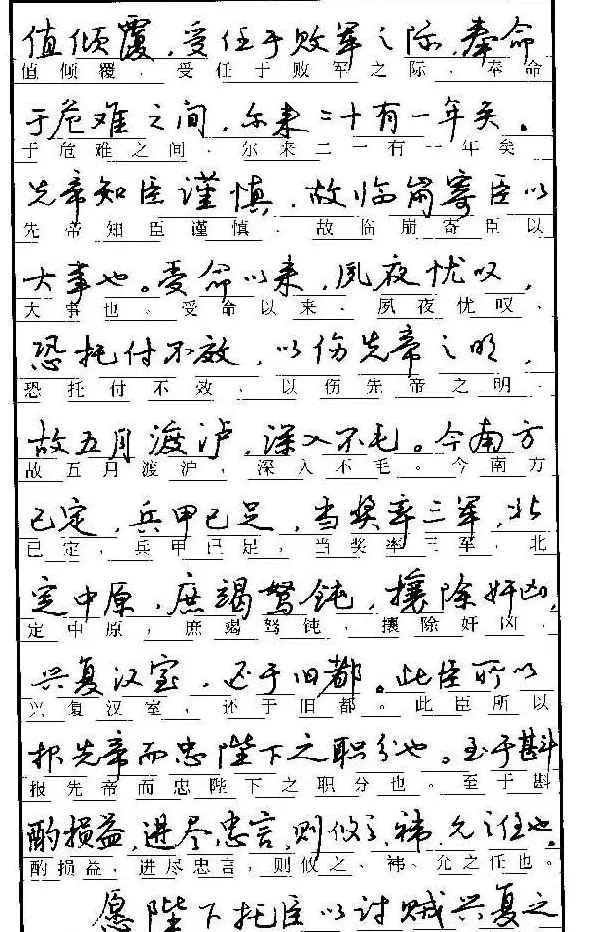 值倾覆，受任于败军之际，奉命
值倾覆，受任于败军之际，奉命
于危难之间，尔来二十有一年矣。
于危难之间，尔来二一有一年矣
先帝知臣谨慎，故临崩寄臣以
先帝知臣谨慎，故临崩寄臣以
大事也。受命以来，夙夜忧叹，
大事也。受命以来，夙夜忧叹，
恐托付不效，以伤先帝之明，
恐托付不效，以伤先帝之明，
故五月渡泸，深入不毛。今南方
故五月渡泸，深入不毛。今南方
已定，兵甲已足，当奖率三军，北
已定，兵甲已足，当奖率三军，北
定中原，庶竭驽钝，攘除奸凶，
定中原，庶竭驽钝，攘除奸凶，
兴复汉室，还于旧都。此臣所以
兴复汉室，还于旧都。此臣所以
报先帝而忠陛下之职分也。至于斟
报先帝而忠陛下之职分也。至于斟
酌损益，进尽忠言，则攸之、祎、允之任也。
酌损益，进尽忠言，则攸之、祎、允之任也。
愿陛下托臣以讨贼兴复之